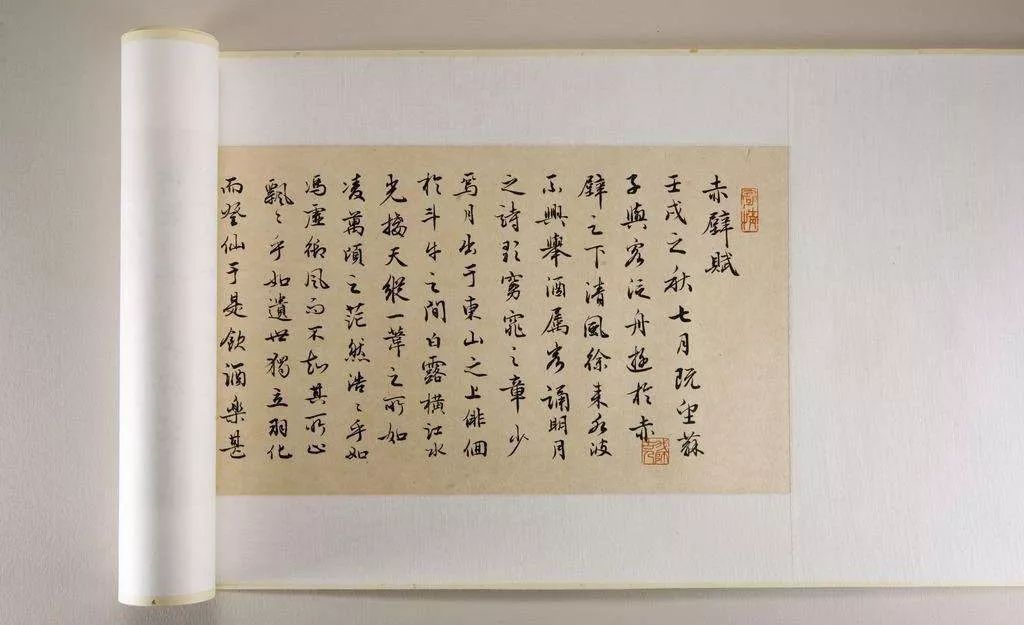 赤壁賦
壬戌之秋七月既望蘇
子與客泛舟遊於赤
壁之下清風徐来水波
不興舉酒属客誦明月
之詩歌窈窕之章少
焉月出于東山之上俳佪
於斗牛之間白露橫江水
光接天縱一葦之所如
凌萬頃之茫然浩〻乎如
馮虛御風而不知其所止
飄〻乎如遺世獨立羽化
而登仙于是飲酒樂甚